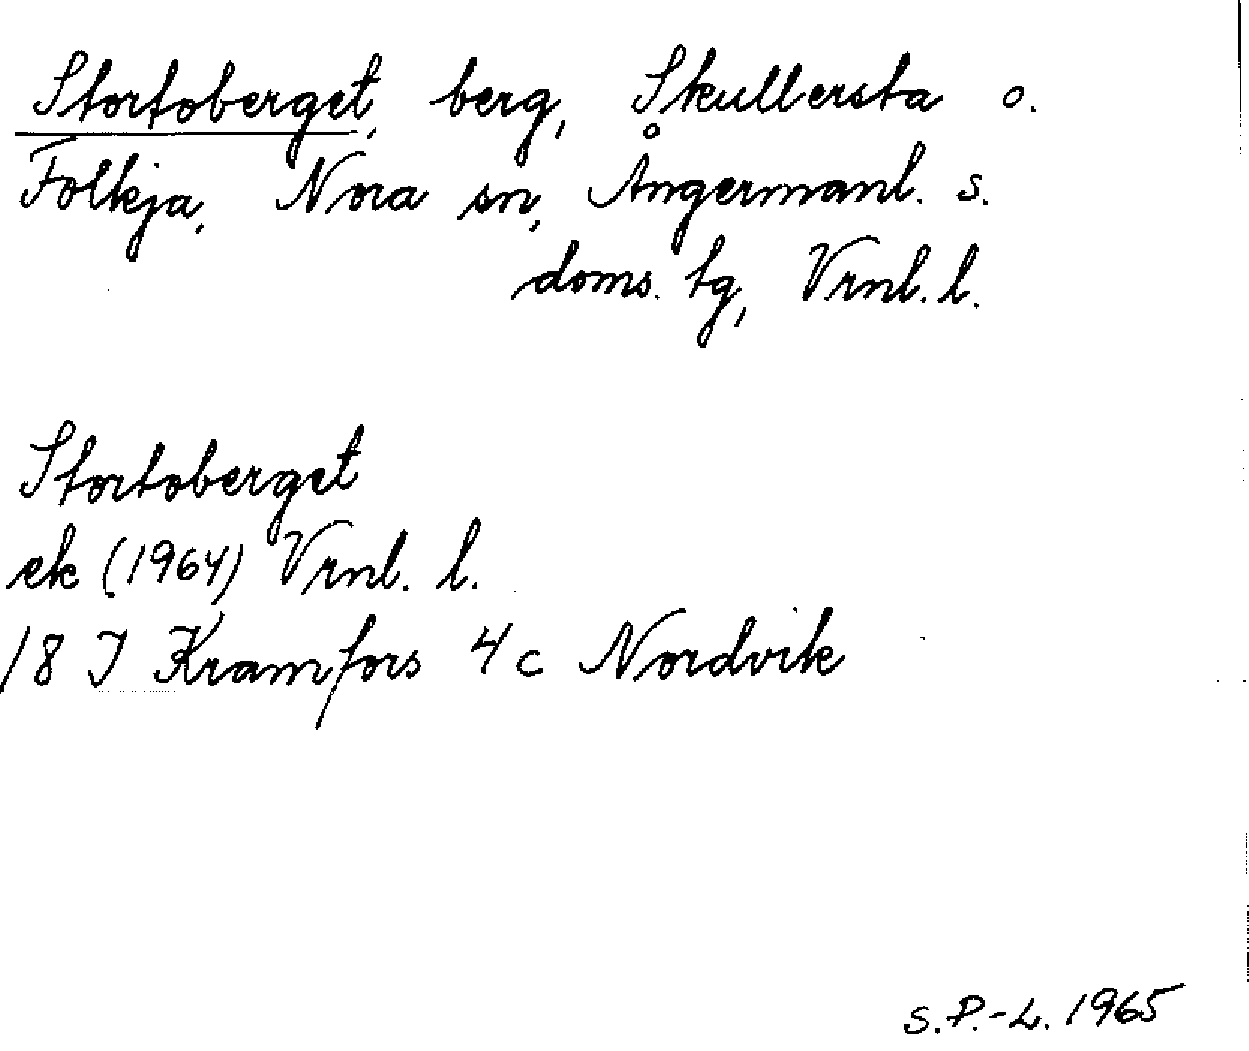 Stortoberget, berg, Skullersta o.
Folkja, Nora sn, Ångermanl. s.
doms. tg, Vrnl. l.
Stortoberget
ek (1964) Vrnl. l.
18 I Kramfors 4c Nordvik
S.P.-L. 1965